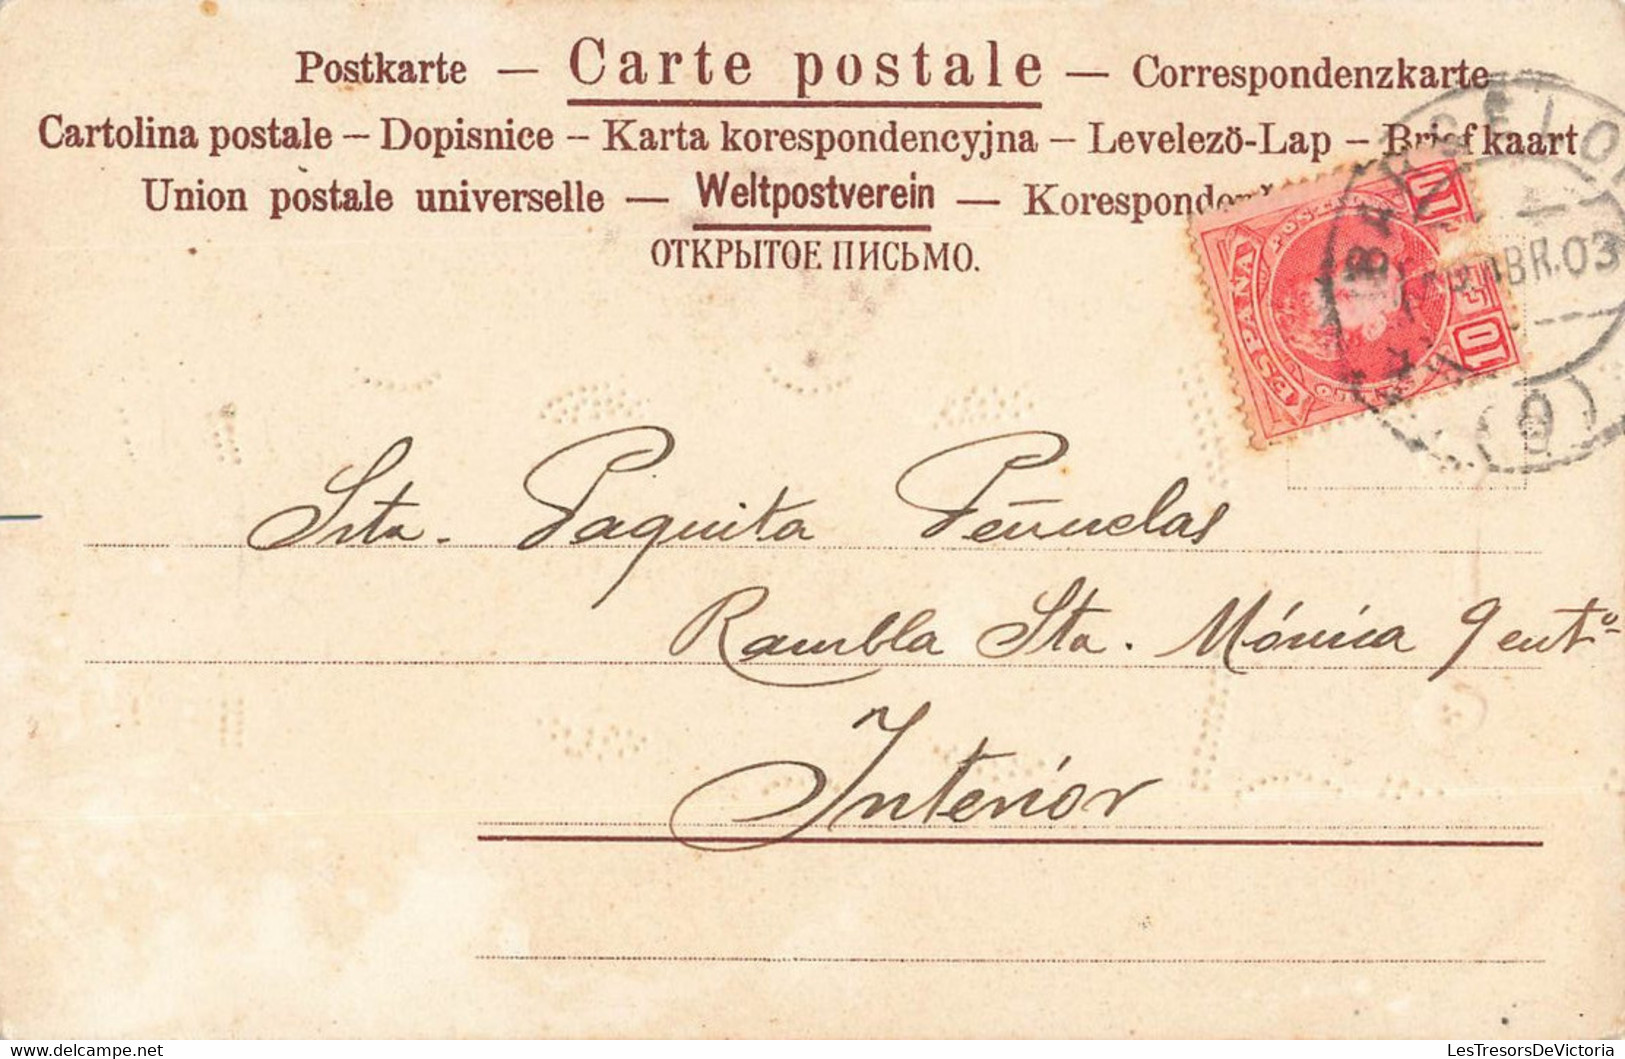 Postkarte — Carte postale — Correspondenzkarte
Cartolina postale – Dopisnice – Karta korespondencyjna – Levelező-Lap – Briefkaart
Union postale universelle — Weltpostverein —
ОТКРЫТОЕ ПИСЬМО.
ESPAÑA
10
10
ABR.03
Srta. Paquita Peñuelas
Rambla Sta. Mónica 9 entº
Interior
LesTresorsDeVictoria